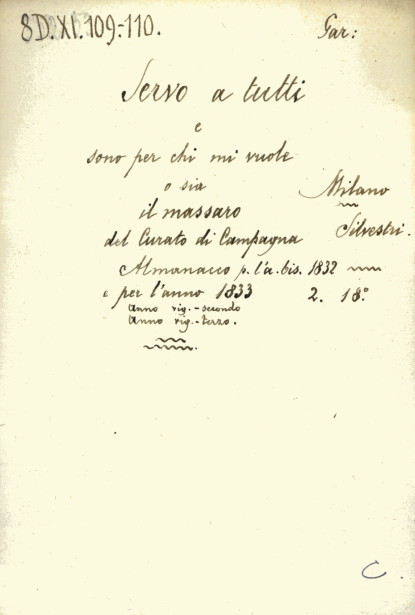 8D.XI.109-110.
Gar:
Servo a tutti
e
sono per chi mi vuole
o sia
il massaro
del Curato di Campagna
Almanacco p. l'a. bis. 1832
e per l'anno 1833
Anno vig.-secondo
Anno vig.-terzo.
Milano
Silvestri.
2. 18°
C.